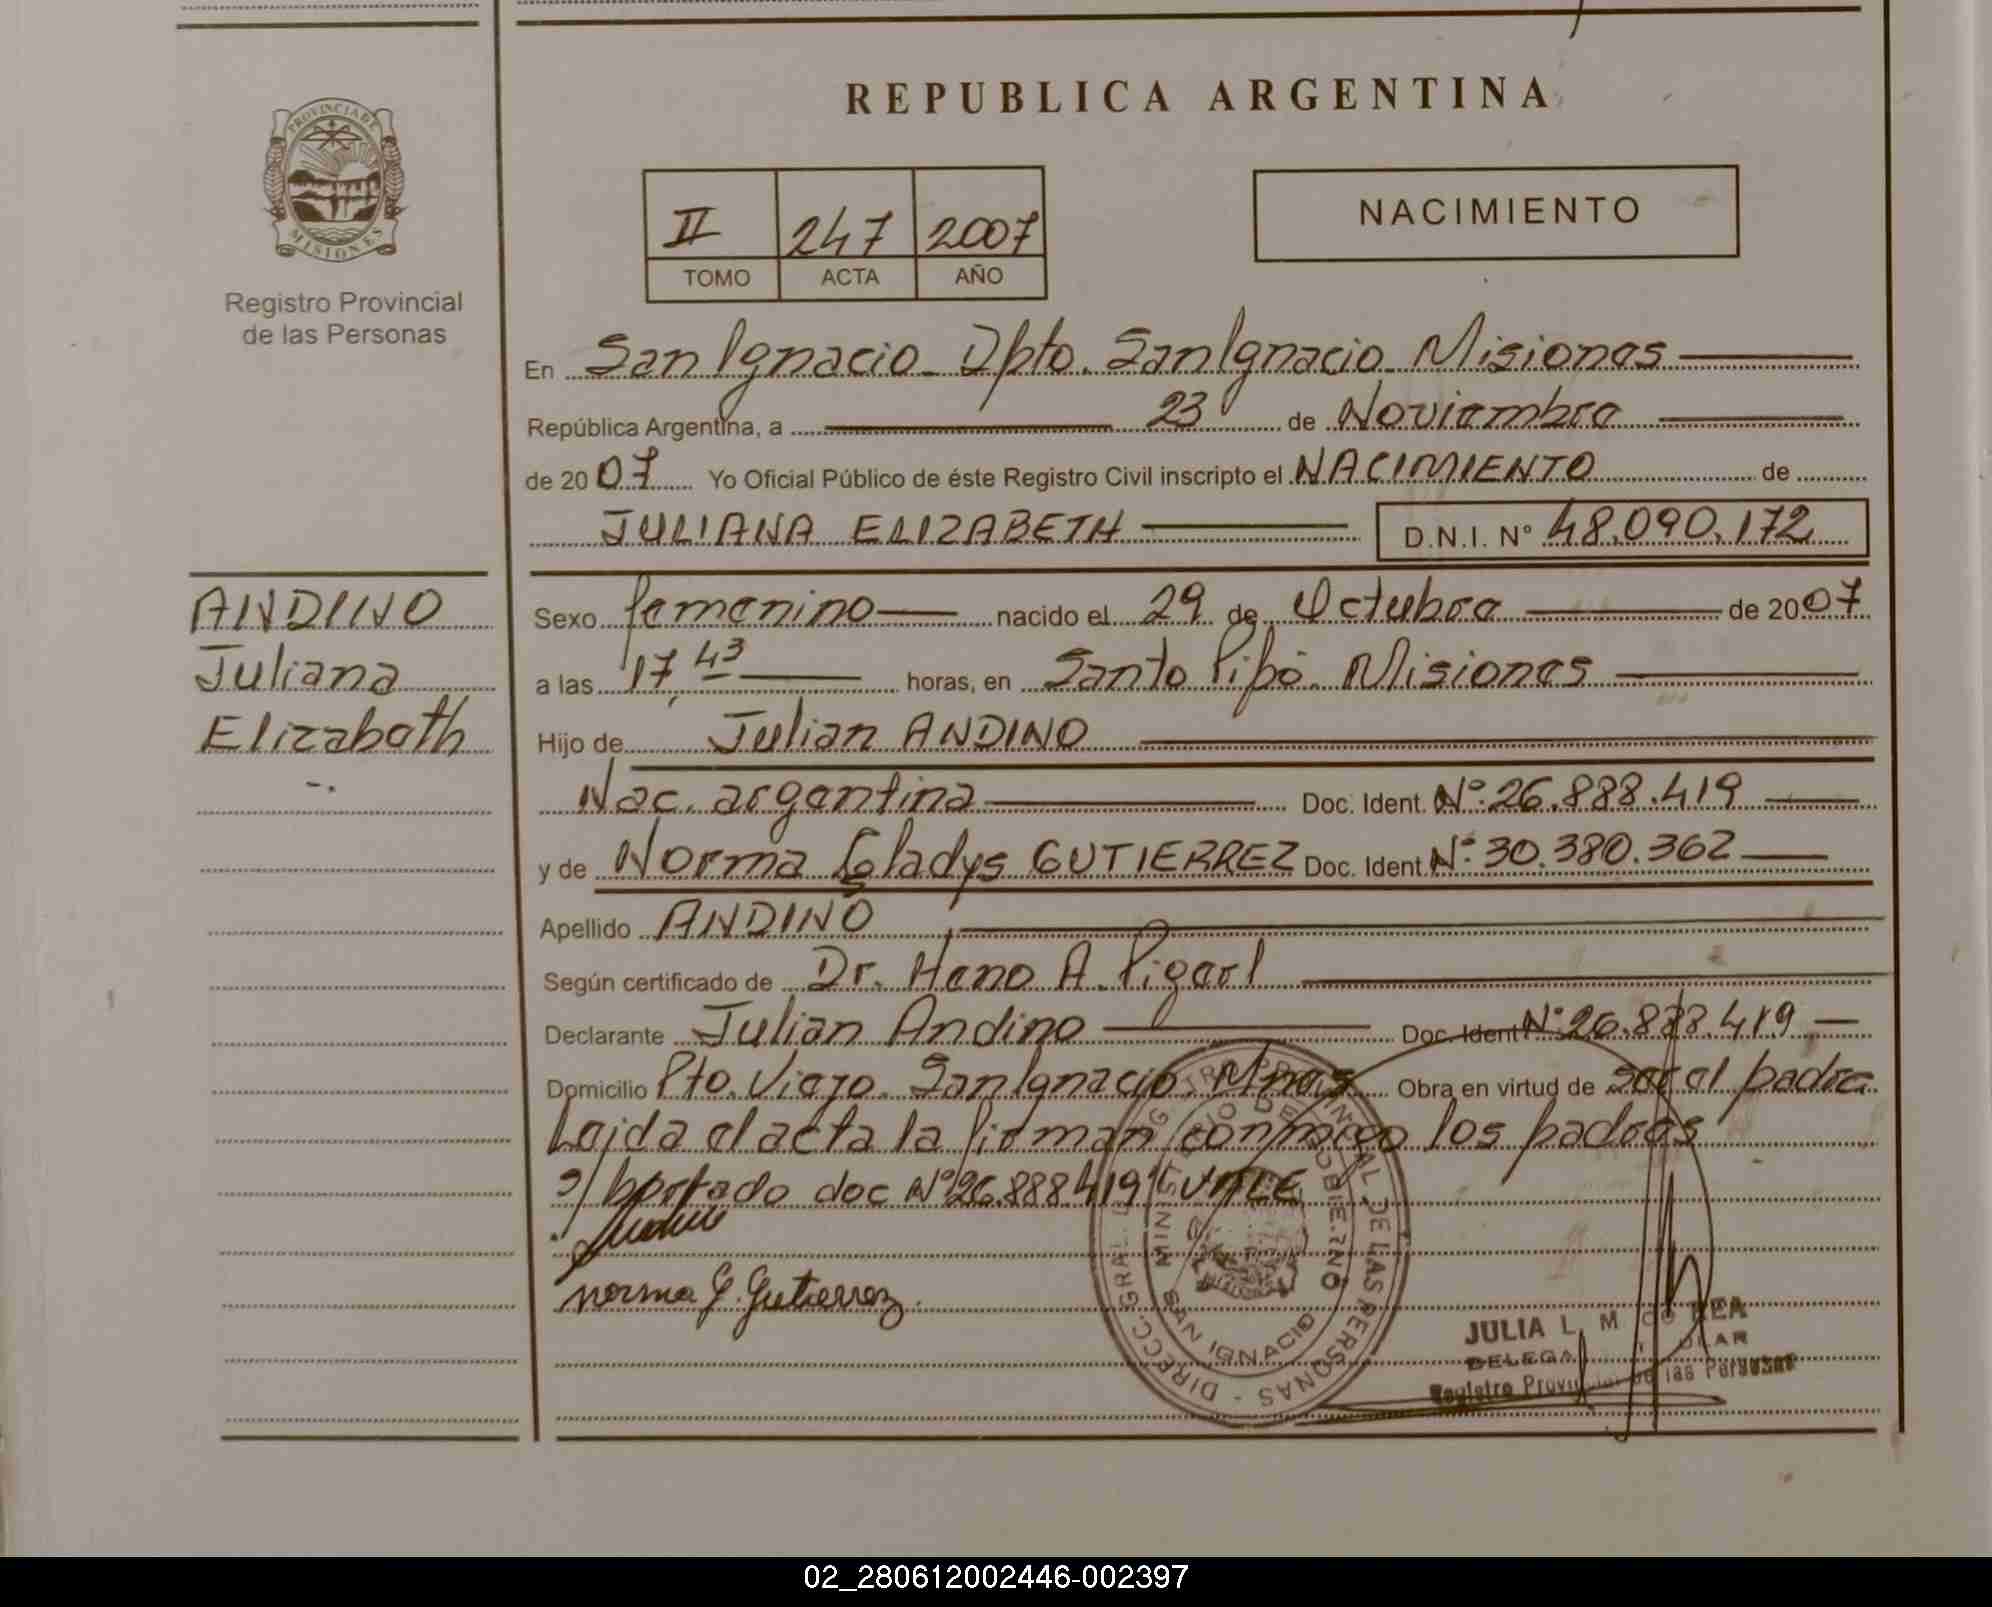 PROVINCIA DE
MISIONES
Registro Provincial
de las Personas
ANDINO
Juliana
Elizabeth
REPUBLICA ARGENTINA
II 247 2007
TOMO ACTA AÑO
NACIMIENTO
En San Ignacio. Dpto. San Ignacio. Misiones
República Argentina, a 23 de Noviembre
de 2007 Yo Oficial Público de éste Registro Civil inscripto el NACIMIENTO de
JULIANA ELIZABETH D.N.I. N° 48.090.172
Sexo femenino nacido el 29 de Octubre de 2007
a las 17,43 horas, en Santo Pipó. Misiones
Hijo de Julian ANDINO
Nac. argentina Doc. Ident. N°: 26.888.419
y de Norma Gladys GUTIERREZ Doc. Ident. N°: 30.380.362
Apellido ANDINO
Según certificado de Dr. A.
Declarante Julian Andino Doc. Ident N° 26.888.419
Domicilio Pto. Viejo. San Ignacio Mnes Obra en virtud de ser el padre.
Leida el acta la firman conmigo los padres
s/ borrado doc N° "26.888.419" VALE
norma G. Gutierrez.
DIRECC. GRAL. REG TRO PROVINCIAL DE LAS PERSONAS
MINISTERIO DE GOBIERNO
SAN IGNACIO
JULIA L M CORREA
DELEGA ULAR
Registro Provincial de las Personas
02_280612002446-002397